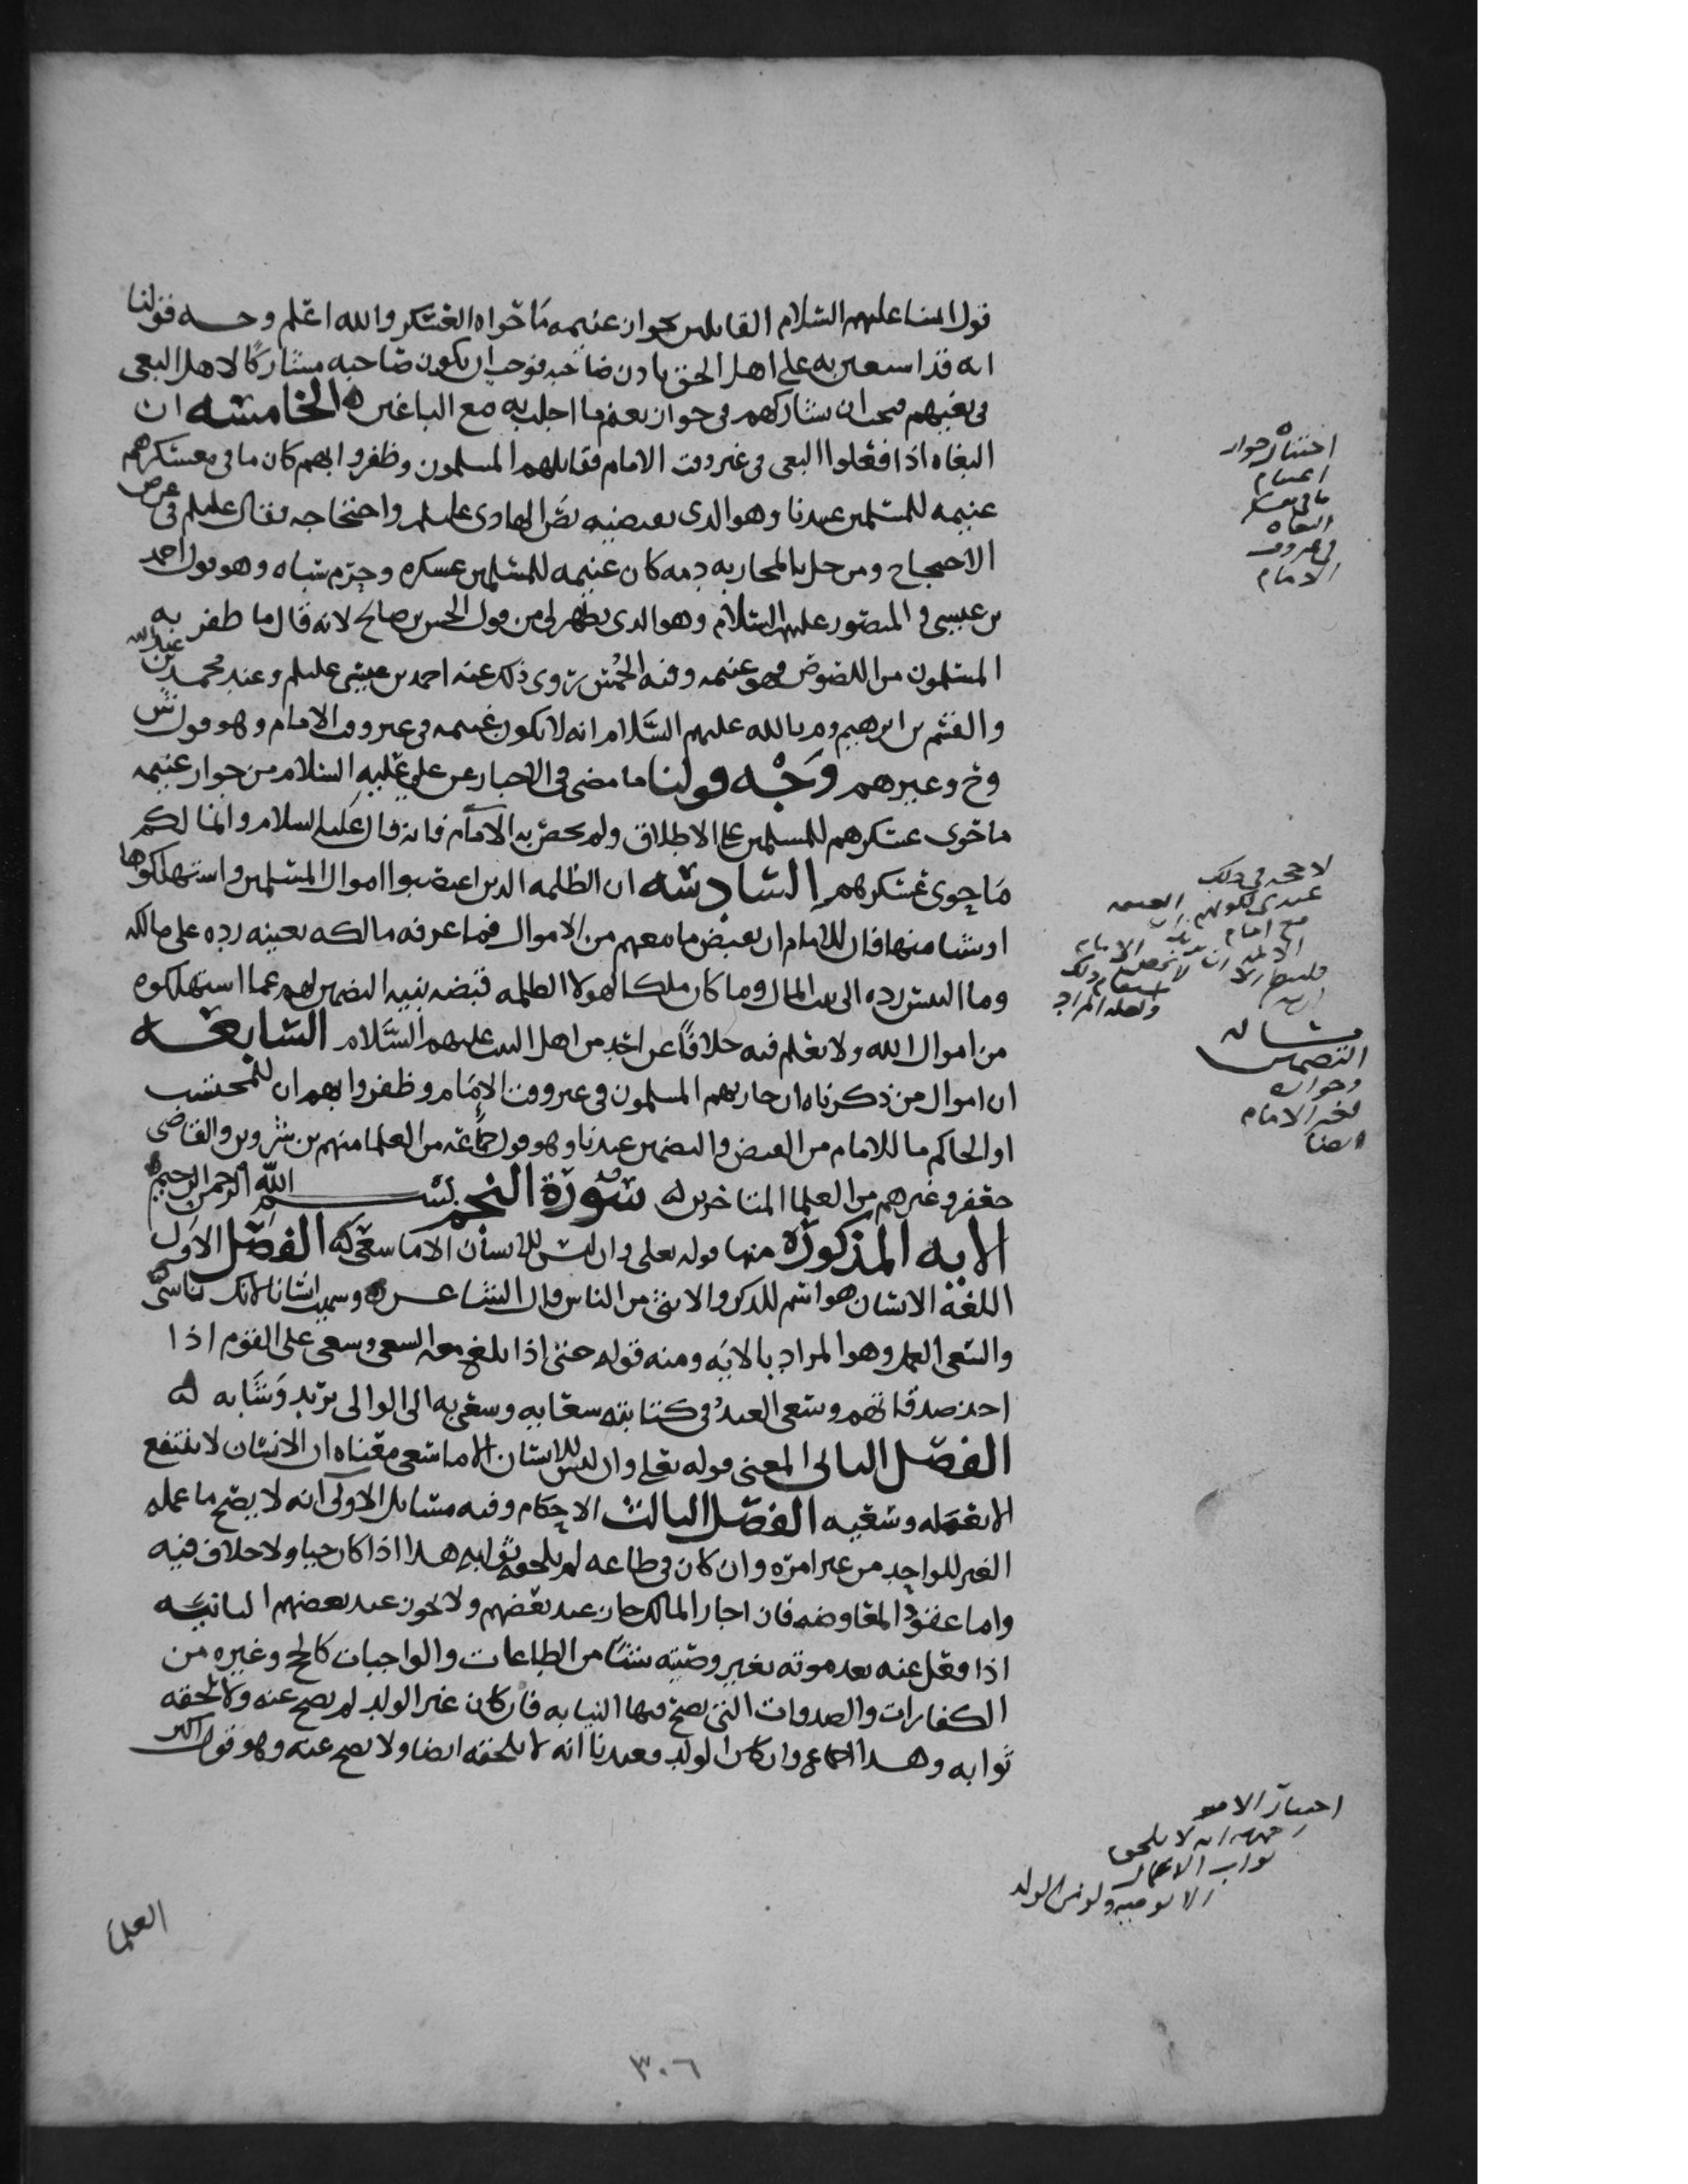 قول ائمتنا عليهم السلام القائلين بجواز غنيمه ما حواه العسكر والله اعلم وجه قولنا
انه قد استعين به على اهل الحق باذن صاحبه فوجب ان يكون صاحبه مشاركا لاهل البغى
فى بغيهم فيجب ان يشاركهم فى جواز تغنم ما اجلب به مع الباغين الخامسه ان
البغاه اذا فعلوا البغى فى غير وقت الامام فقاتلهم المسلمون وظفروا بهم كان ما فى معسكرهم
غنيمه للمسلمين عندنا وهو الذى يقتضيه نص الهادى عليلم واحتجاجه فقال عليلم فى عرض
الاحتجاج ومن حل بالمحاربه دمه كان غنيمه للمسلمين عسكره وحرم سباه وهو قول احمد
بن عيسى و المنصور عليهم السلام وهو الذى يظهر لى من قول الحسن بن صالح لانه قال ما ظفر به
المسلمون من اللصوص فهو غنيمه وفيه الخمس روى ذلك عنه احمد بن عيسى عليلم وعند محمد بن عبدالله
والقسم بن ابرهيم و م بالله عليهم السلام انه لا يكون غنيمه فى غير وقت الامام وهو قول ش
وح وغيرهم وجه قولنا ما مضى فى الاخبار عن على عليه السلام من جواز غنيمه
ما حوى عسكرهم للمسلمين على الاطلاق ولم يخص به الامام فانه قال عليه السلام وانما لكم
ما حوى عسكرهم السادسه ان الظلمه الذين اغتصبوا اموال المسلمين واستهلكوها
او شيا منها فان للامام ان يقبض ما معهم من الاموال فما عرفه مالكه بعينه رده على مالكه
وما التبس رده الى بيت المال وما كان ملكا لهولا الظلمه قبضه بنيه التضمين لهم عما استهلكوه
من اموال الله ولا نعلم فيه خلافا عن احد من اهل البيت عليهم السلام السابعه
ان اموال من ذكرناه ان حاربهم المسلمون فى غير وقت الامام وظفروا بهم ان للمحتسب
او الحاكم ما للامام من القبض والتضمين عندنا وهو قول جماعه من العلما منهم بن شروين والقاضى
جعفر وغيرهم من العلما المتاخرين سورة النجم بسم الله الرحمن الرحيم
الايه المذكورة منها قوله تعلى وان ليس للانسان الا ما سعى الفصل الاول
اللغة الانسان هو اسم للذكر والانثى من الناس قال الشاعر وسميت انسانا لانك ناسى
والسعى العمل وهو المراد بالايه ومنه قوله حتى اذا بلغ معه السعى وسعى على القوم اذا
اخذ صدقاتهم وسعى العبد فى كتابته سعايه وسعى به الى الوالى يريد وشا به
الفصل الثانى المعنى قوله تعلى وان ليس للانسان الا ما سعى معناه ان الانسان لا ينتفع
الا بعمله وسعيه الفصل الثالث الاحكام وفيه مسائل الاولى انه لا يصح ما عمله
الغير للواحد من غير امره وان كان فى طاعه لم يلحقه ثوابه هذا اذا كان حيا ولا خلاف فيه
واما عقود المعاوضه فان اجاز المالك جاز عند بعضهم ولا يجوز عند بعضهم الثانيه
اذا فعل عنه بعد موته بغير وصيته شيا من الطاعات والواجبات كالحج وغيره من
الكفارات والصدقات التى تصح فيها النيابه فان كان غير الولد لم يصح عنه ولا يلحقه
ثوابه وهذا اجماع وان كان الولد فعندنا انه لا يلحقه ايضا ولا يصح عنه وهو قول اكثر
العلما
اختيار جواز
اغتنام
ما فى معسكر
البغاه
فى غير وقت
الامام
لا حجه فى ذلك
مساله
التضمين
وجوازه
لغير الامام
ايضا
اختيار الامير
رحمه الله انه لا يلحق
ثواب الاعمال
الا بوصيه ولو من الولد
٣٠٦